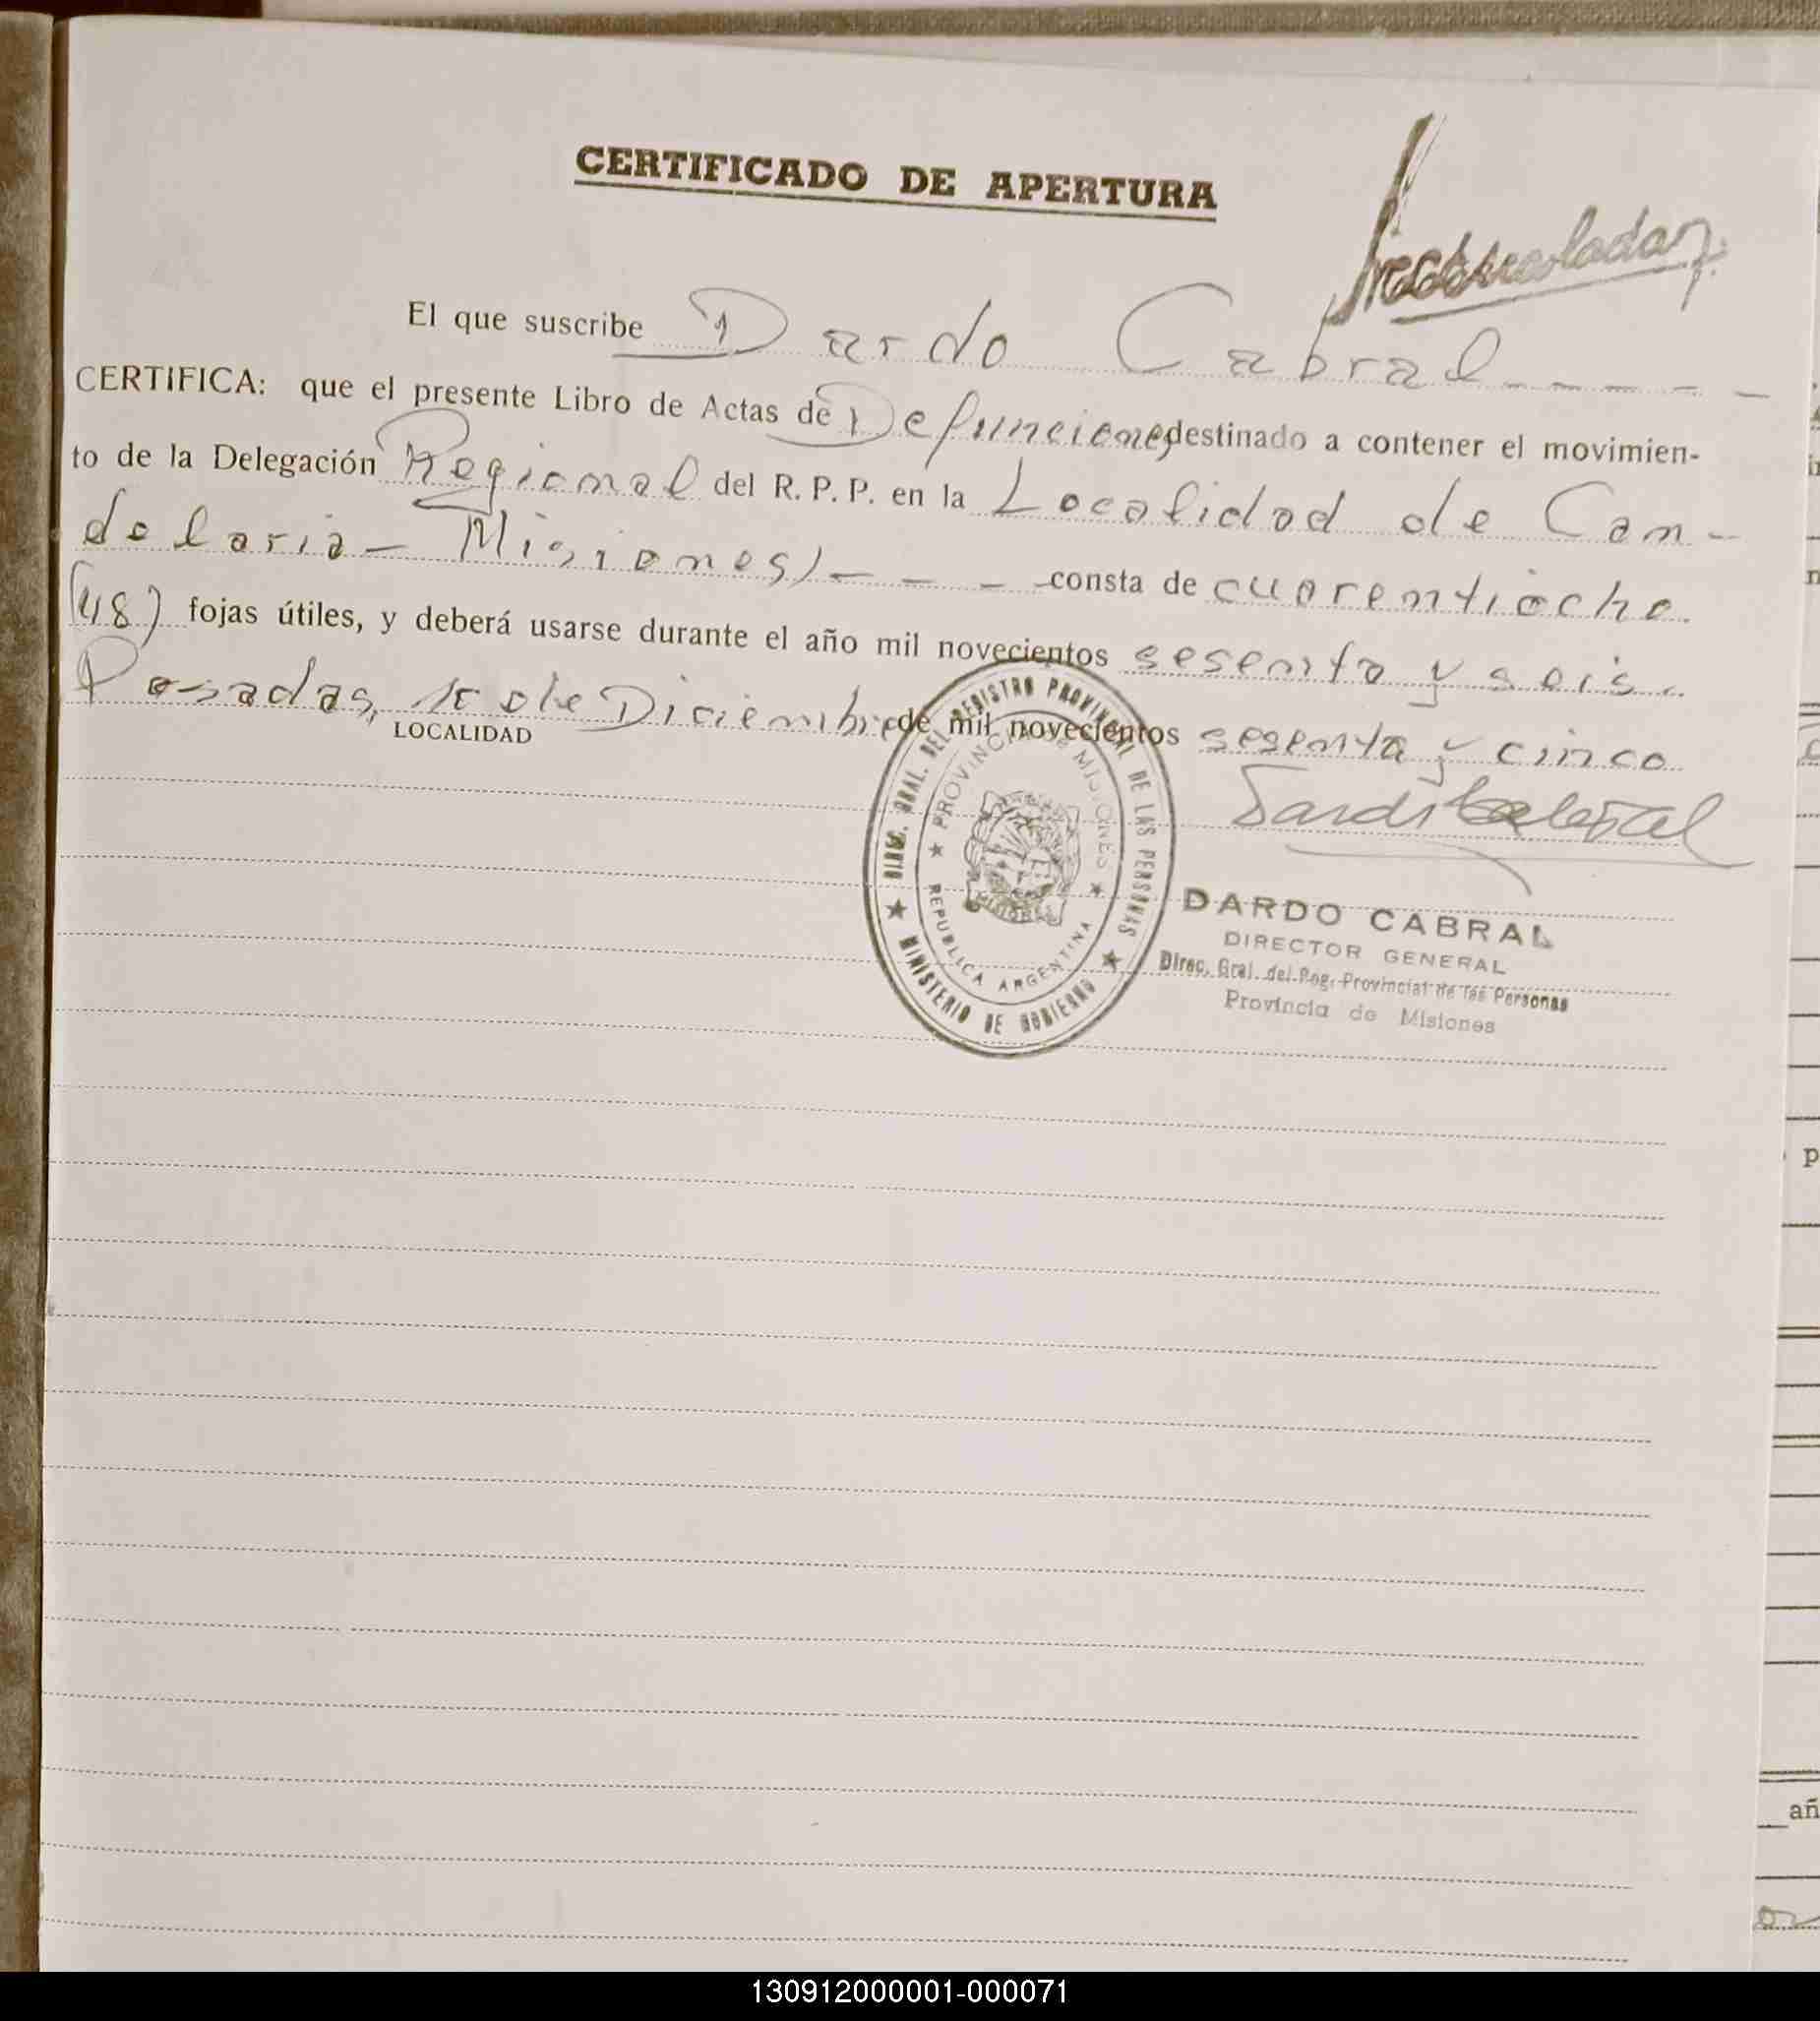 CERTIFICADO DE APERTURA
El que suscribe Dardo Cabral
CERTIFICA: que el presente Libro de Actas de Defunciones destinado a contener el movimien-
to de la Delegación Regional del R. P. P. en la Localidad de Can-
delaria - Misiones) - - - - consta de cuarentiocho
(48) fojas útiles, y deberá usarse durante el año mil novecientos sesenta y seis.
Posadas, de Diciembre de mil novecientos sesenta y cinco
LOCALIDAD
Dardo Cabral
DIR. GRAL. DEL REGISTRO PROVINCIAL DE LAS PERSONAS
★ MINISTERIO DE GOBIERNO ★
★ PROVINCIA de MISIONES ★
REPUBLICA ARGENTINA
MISIONES
DARDO CABRAL
DIRECTOR GENERAL
Direc. Gral. del Reg. Provincial de las Personas
Provincia de Misiones
p
añ
130912000001-000071